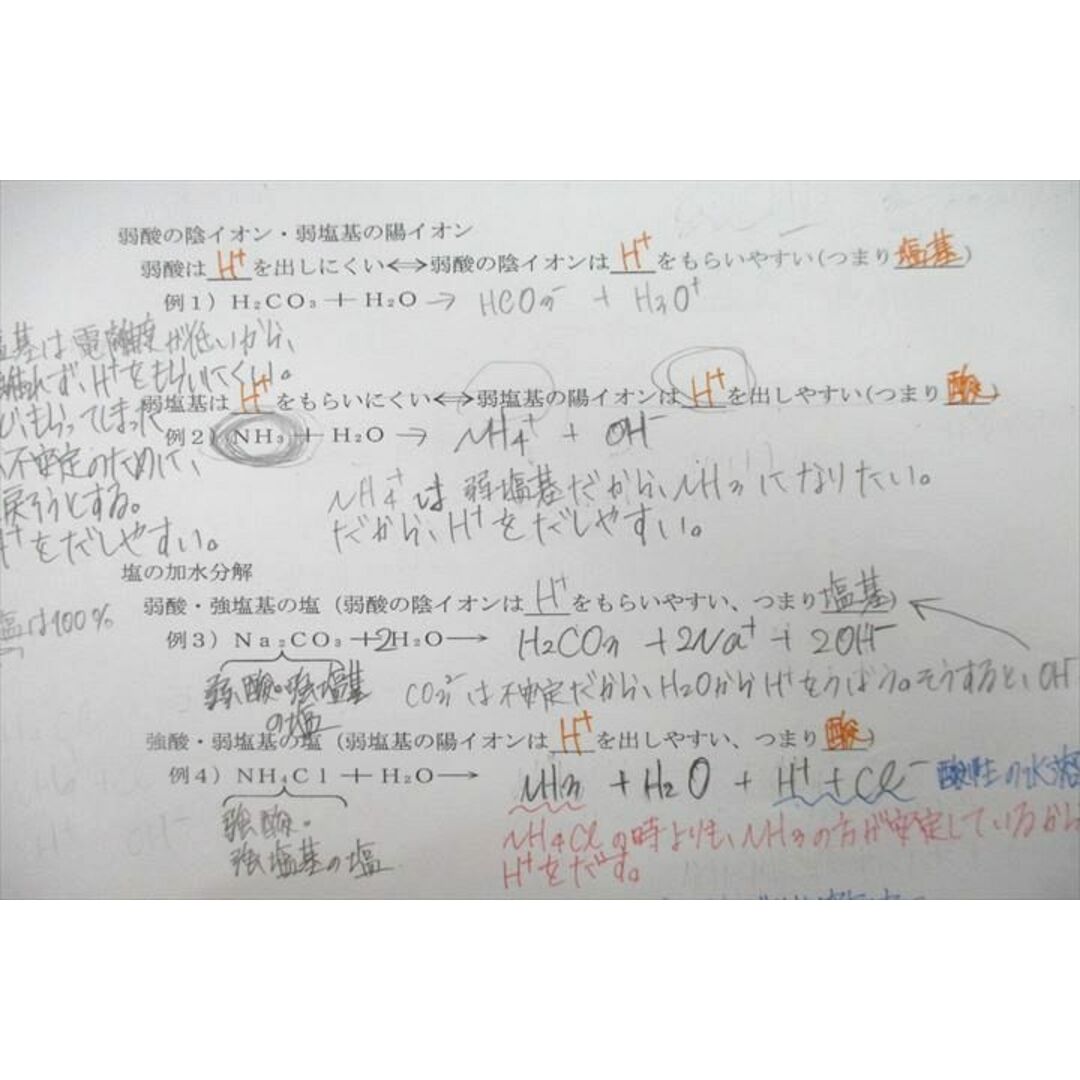 弱酸の陰イオン・弱塩基の陽イオン
弱酸は H⁺ を出しにくい⇔弱酸の陰イオンは H⁺ をもらいやすい(つまり 塩基)
例1) H₂CO₃＋H₂O → HCO₃⁻ + H₃O⁺
塩基は電離度が低いから、
離れず、H⁺をもらいにくい。
弱塩基は H⁺ をもらいにくい⇔弱塩基の陽イオンは H⁺ を出しやすい(つまり 酸)
もらってしまった
例2) NH₃＋H₂O → NH₄⁺ + OH⁻
不安定のために、
戻ろうとする。
H⁺をだしやすい。
NH₄⁺は弱塩基だから、NH₃になりたい。
だから、H⁺をだしやすい。
塩の加水分解
弱酸・強塩基の塩（弱酸の陰イオンは H⁺ をもらいやすい、つまり 塩基)
塩は100%
例3) Na₂CO₃＋2H₂O→ H₂CO₃ + 2Na⁺ + 2OH⁻
弱酸・強塩基
の塩
CO₃²⁻は不安定だから、H₂OからH⁺をうばう。そうすると、OH⁻
強酸・弱塩基の塩（弱塩基の陽イオンは H⁺ を出しやすい、つまり 酸)
例4) NH₄Cl＋H₂O→ NH₃ + H₂O + H⁺ + Cl⁻ 酸性の水溶
強酸・
強塩基の塩
NH₄Clの時よりも、NH₃の方が安定しているから
H⁺をだす。